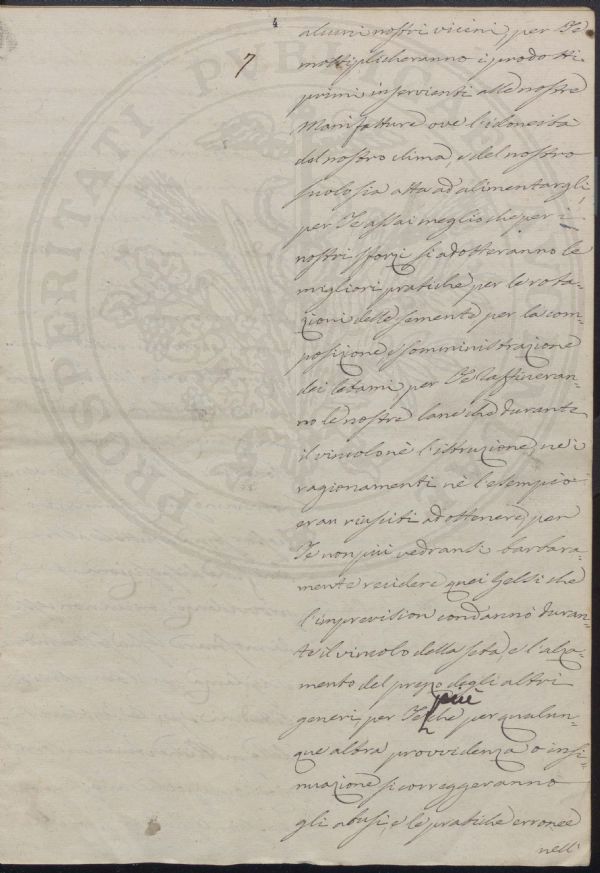 4
7
alcuni nostri vicini, per Te
moltiplicheranno i prodotti
primi inservienti alle nostre
Manifatture ove l'idoneità
del nostro clima, e del nostro
suolo sia atta ad alimentargli,
per Te assai meglio che per i
nostri sforzi si adotteranno le
migliori pratiche per le rota-
zioni delle semente per la com-
posizione e somministrazione
dei letami per Te s'affineran-
no le nostre lane che durante
il vincolo nè l'istruzione, nè i
ragionamenti nè l'esempio
eran riusciti ad ottenere, per
Te non più vedransi barbara-
mente recidere quei Gelsi che
l'imprevision condannò duran-
te il vincolo della seta, e l'alza-
mento del prezo degli altri
generi, per Te più che per qualun-
que altra provvidenza o insi-
nuazione si correggeranno
gli abusi, e le pratiche erronee
nell'
PROSPERITATI PVBLICAE